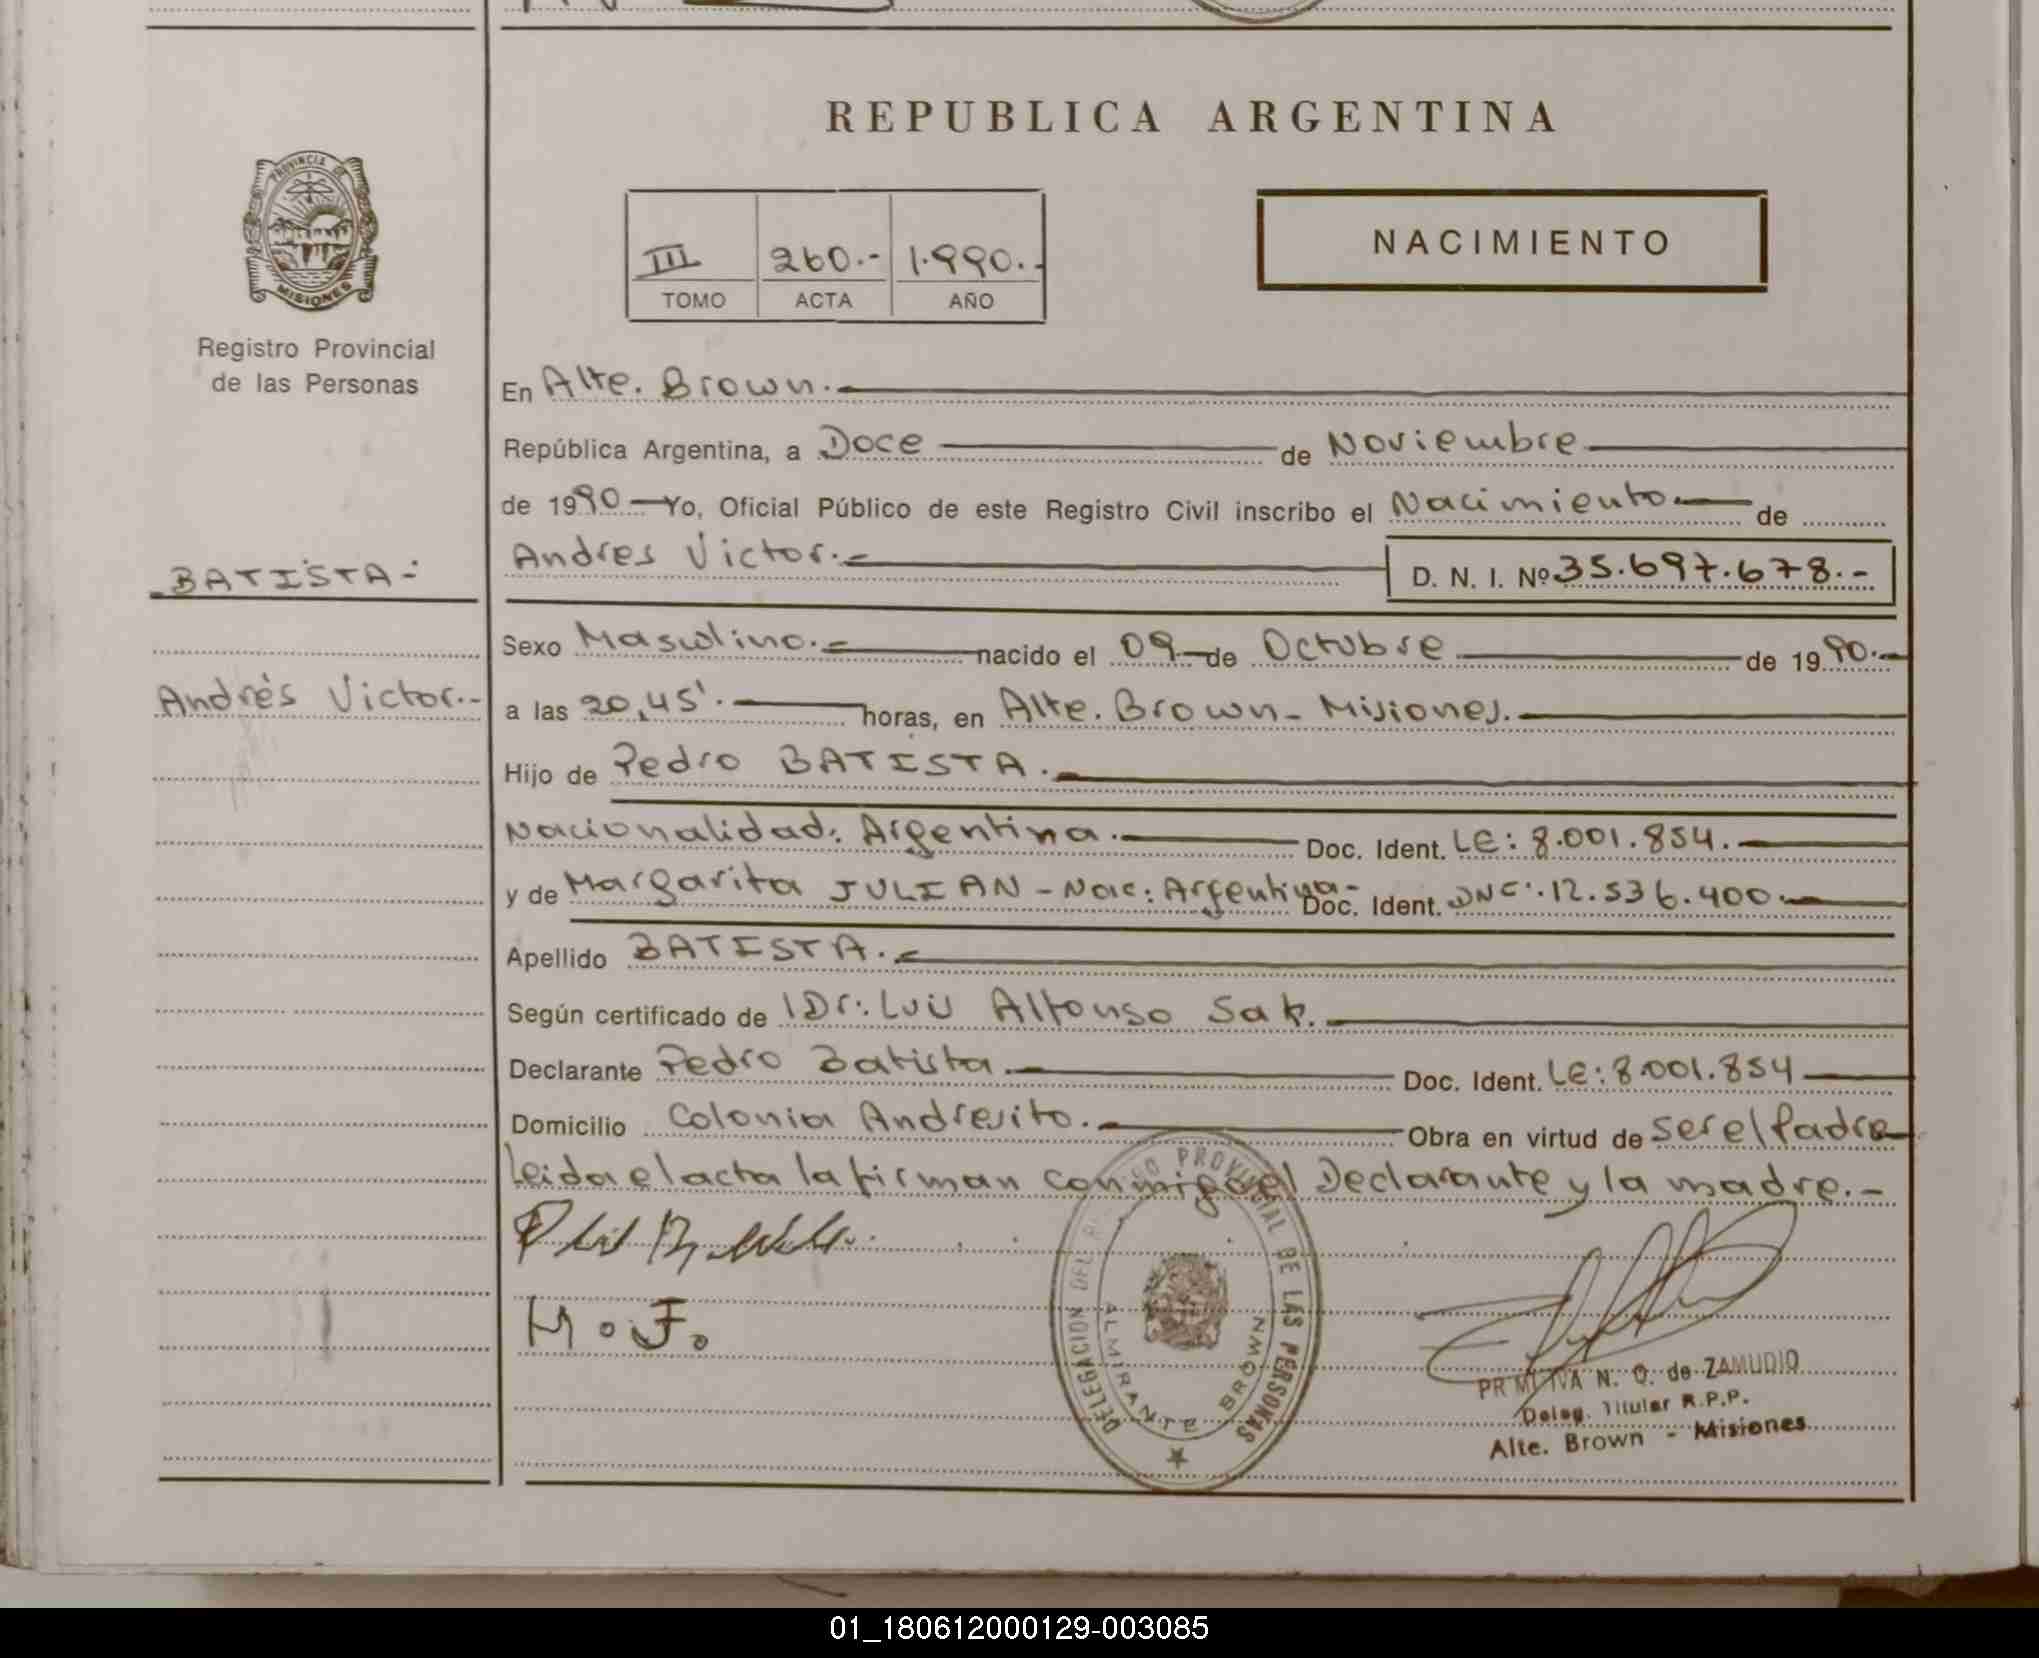 REPUBLICA ARGENTINA
PROVINCIA DE
MISIONES
Registro Provincial
de las Personas
III 260.- 1.990.-
TOMO ACTA AÑO
NACIMIENTO
En Alte. Brown.
República Argentina, a Doce de Noviembre
de 1990 Yo, Oficial Público de este Registro Civil inscribo el Nacimiento de
BATISTA.-
Andres Victor.- D. N. I. Nº 35.697.678.-
Sexo Masculino.- nacido el 09 de Octubre de 1990.-
Andrés Victor.-
a las 20,45'. horas, en Alte. Brown - Misiones.
Hijo de Pedro BATISTA.
Nacionalidad: Argentina. Doc. Ident. LE: 8.001.854.
y de Margarita JULIAN - Nac: Argentina- Doc. Ident. 12.536.400
Apellido BATISTA.-
Según certificado de Dr: Luis Alfonso
Declarante Pedro Batista. Doc. Ident. LE: 8.001.854
Domicilio Colonia Andresito. Obra en virtud de ser el Padre
Leida el acta la firman conmigo el Declarante y la madre.-
M. J.
DELEGACION DEL REGISTRO PROVINCIAL DE LAS PERSONAS
ALMIRANTE BROWN
PRIMITIVA N. Q. de ZAMUDIO
Deleg. Titular R.P.P.
Alte. Brown - Misiones
01_180612000129-003085